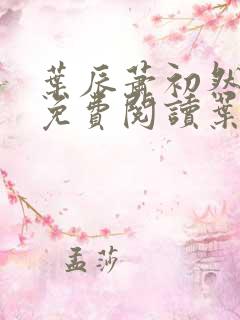 葉辰蕭初然
免費閱讀葉
孟莎